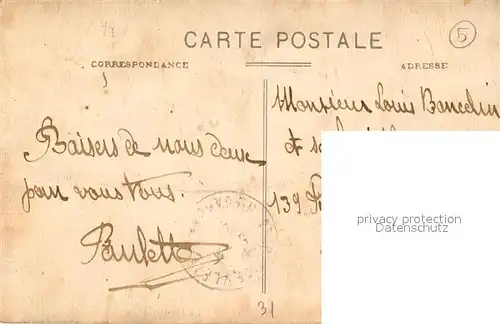 5
CARTE POSTALE
CORRESPONDANCE
ADRESSE
Baisers de nous deux
pour vous tous.
Paulette
Monsieur Louis Bancelin
et
139
privacy protection
Privatsphären-Schutz
31